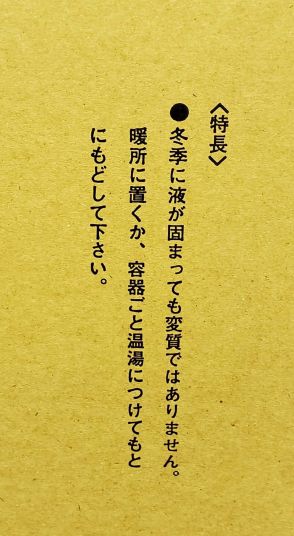 〈特長〉
●冬季に液が固まっても変質ではありません。
暖所に置くか、容器ごと温湯につけてもと
にもどして下さい。